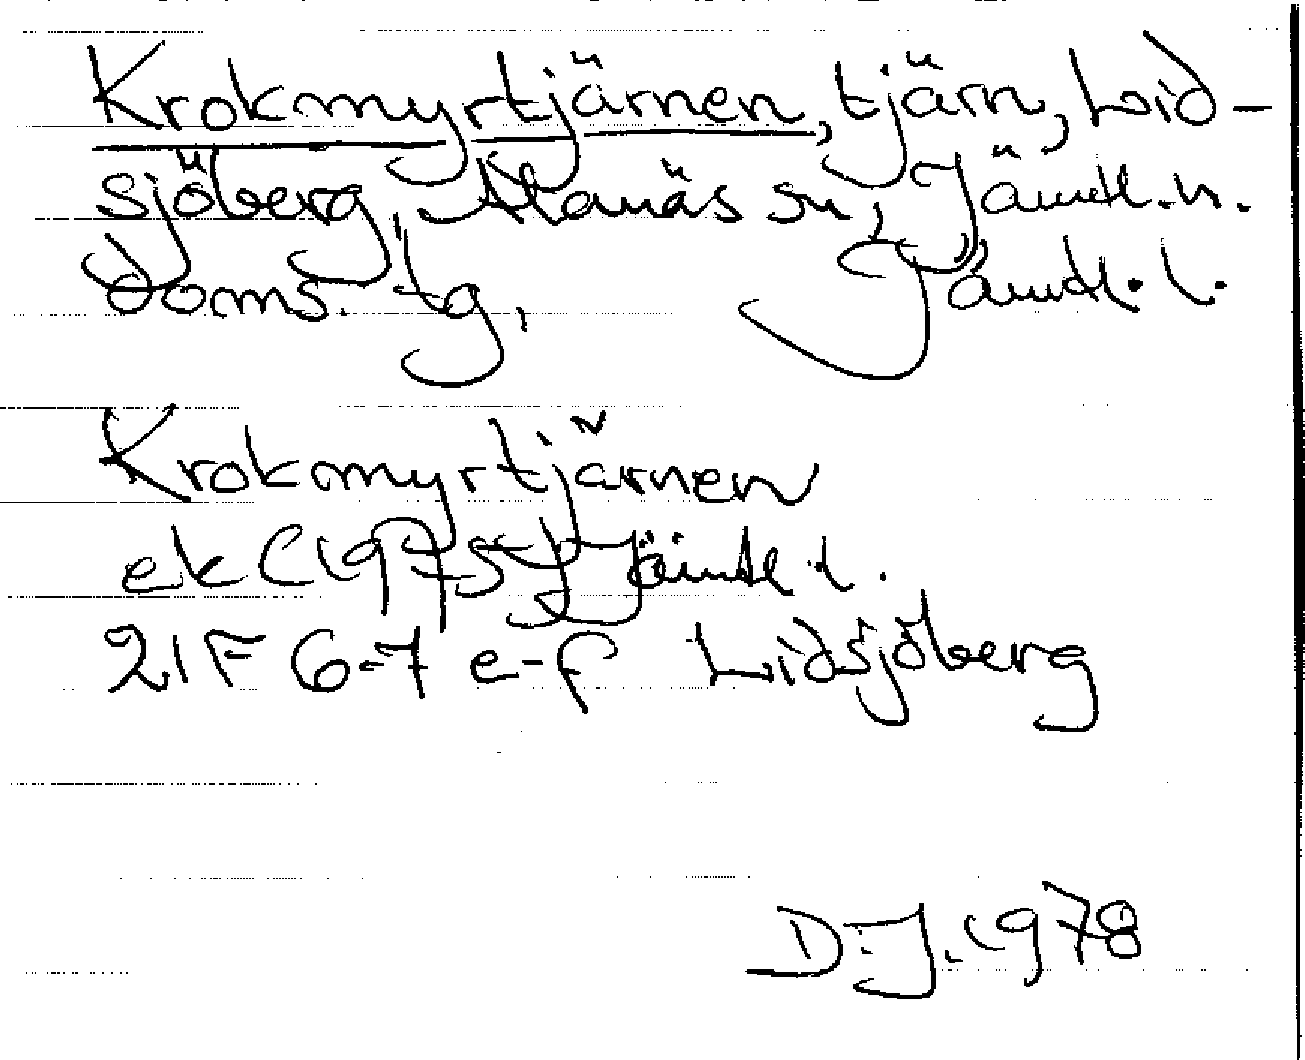 Krokmyrtjärnen, tjärn, Lid-
sjöberg, Alanäs sn, Jämtl. n.
doms. tg, Jämtl. l.
Krokmyrtjärnen
ek (1975) Jämtl l.
21F 6-7 e-f Lidsjöberg
D.J. 1978